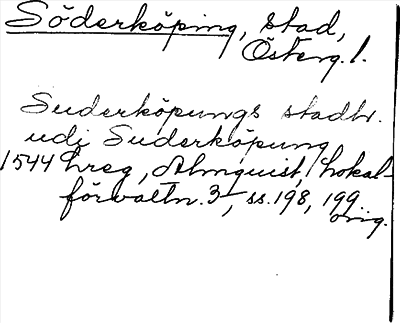 Söderköping, stad,
Österg. l.
Suderköpungs stadhr.
udi Suderköpung
1544 hreg, Almquist, Lokal-
förvaltn. 3, ss. 198, 199
orig.